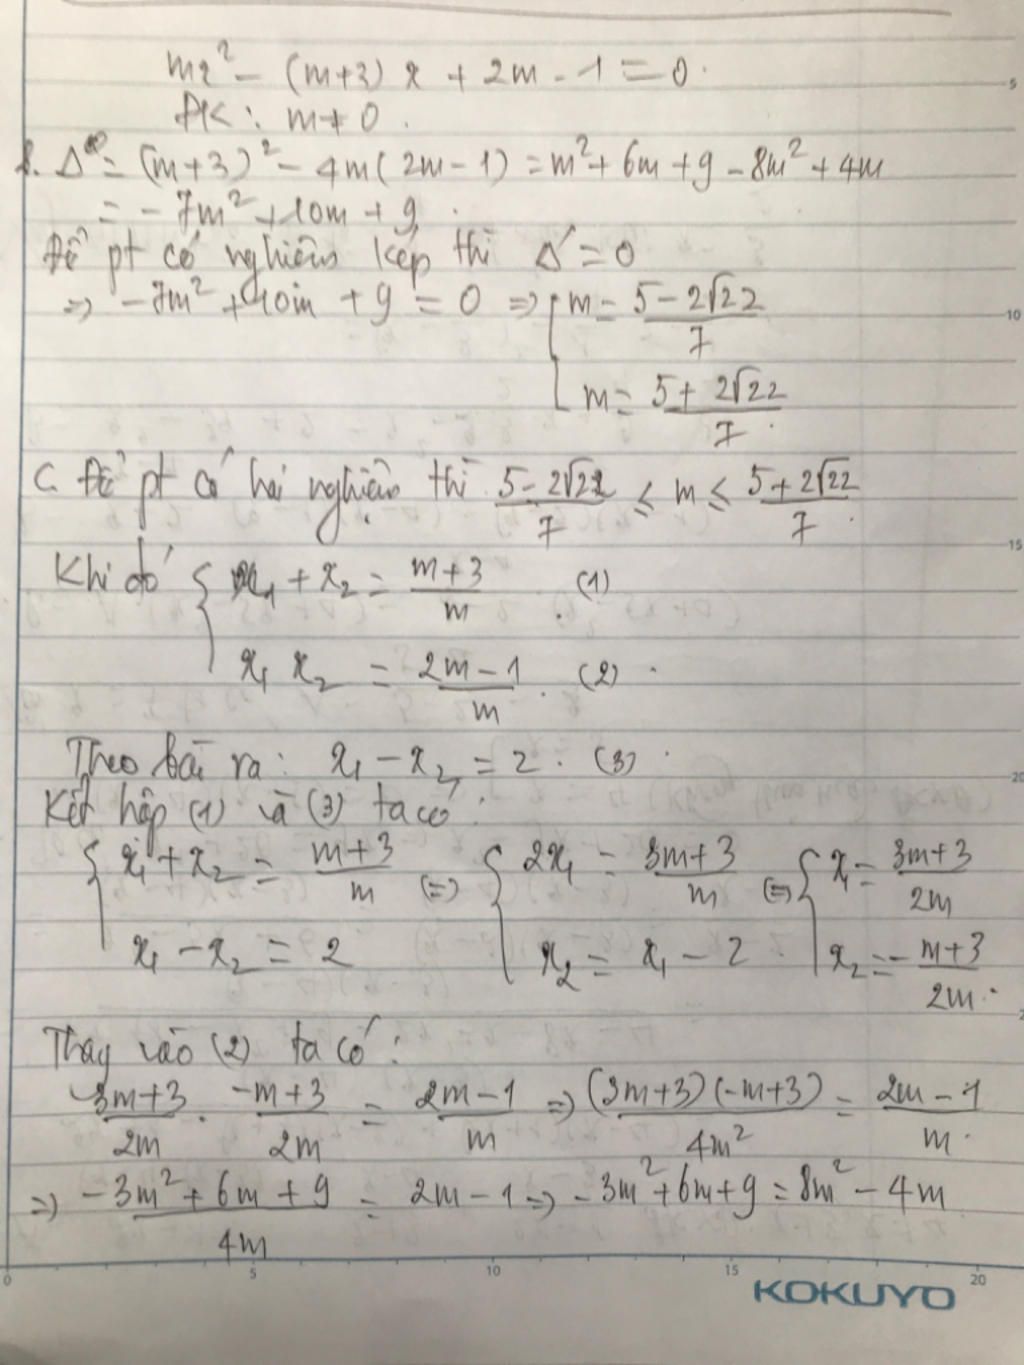 mx² - (m+3) x + 2m - 1 = 0.
ĐK: m ≠ 0.
b. Δ = (m+3)² - 4m(2m-1) = m² + 6m + 9 - 8m² + 4m
= -7m² + 10m + 9.
Để pt có nghiệm kép thì Δ = 0
=> -7m² + 10m + 9 = 0 => [ m = (5-2√22)/7
m = (5+2√22)/7.
C. Để pt có hai nghiệm thì (5-2√22)/7 ≤ m ≤ (5+2√22)/7.
Khi đó { x₁ + x₂ = (m+3)/m (1)
x₁ x₂ = (2m-1)/m. (2).
Theo bài ra: x₁ - x₂ = 2. (3).
Kết hợp (1) và (3) ta có:
{ x₁ + x₂ = (m+3)/m (=) { 2x₁ = (3m+3)/m (=) { x₁ = (3m+3)/2m
x₁ - x₂ = 2 x₂ = x₁ - 2. x₂ = (-m+3)/2m.
Thay vào (2) ta có:
(3m+3)/2m . (-m+3)/2m = (2m-1)/m => (3m+3)(-m+3)/4m² = (2m-1)/m.
=> (-3m² + 6m + 9)/4m = 2m - 1 => -3m² + 6m + 9 = 8m² - 4m
5
10
15
20
0 5 10 15 20
KOKUYO